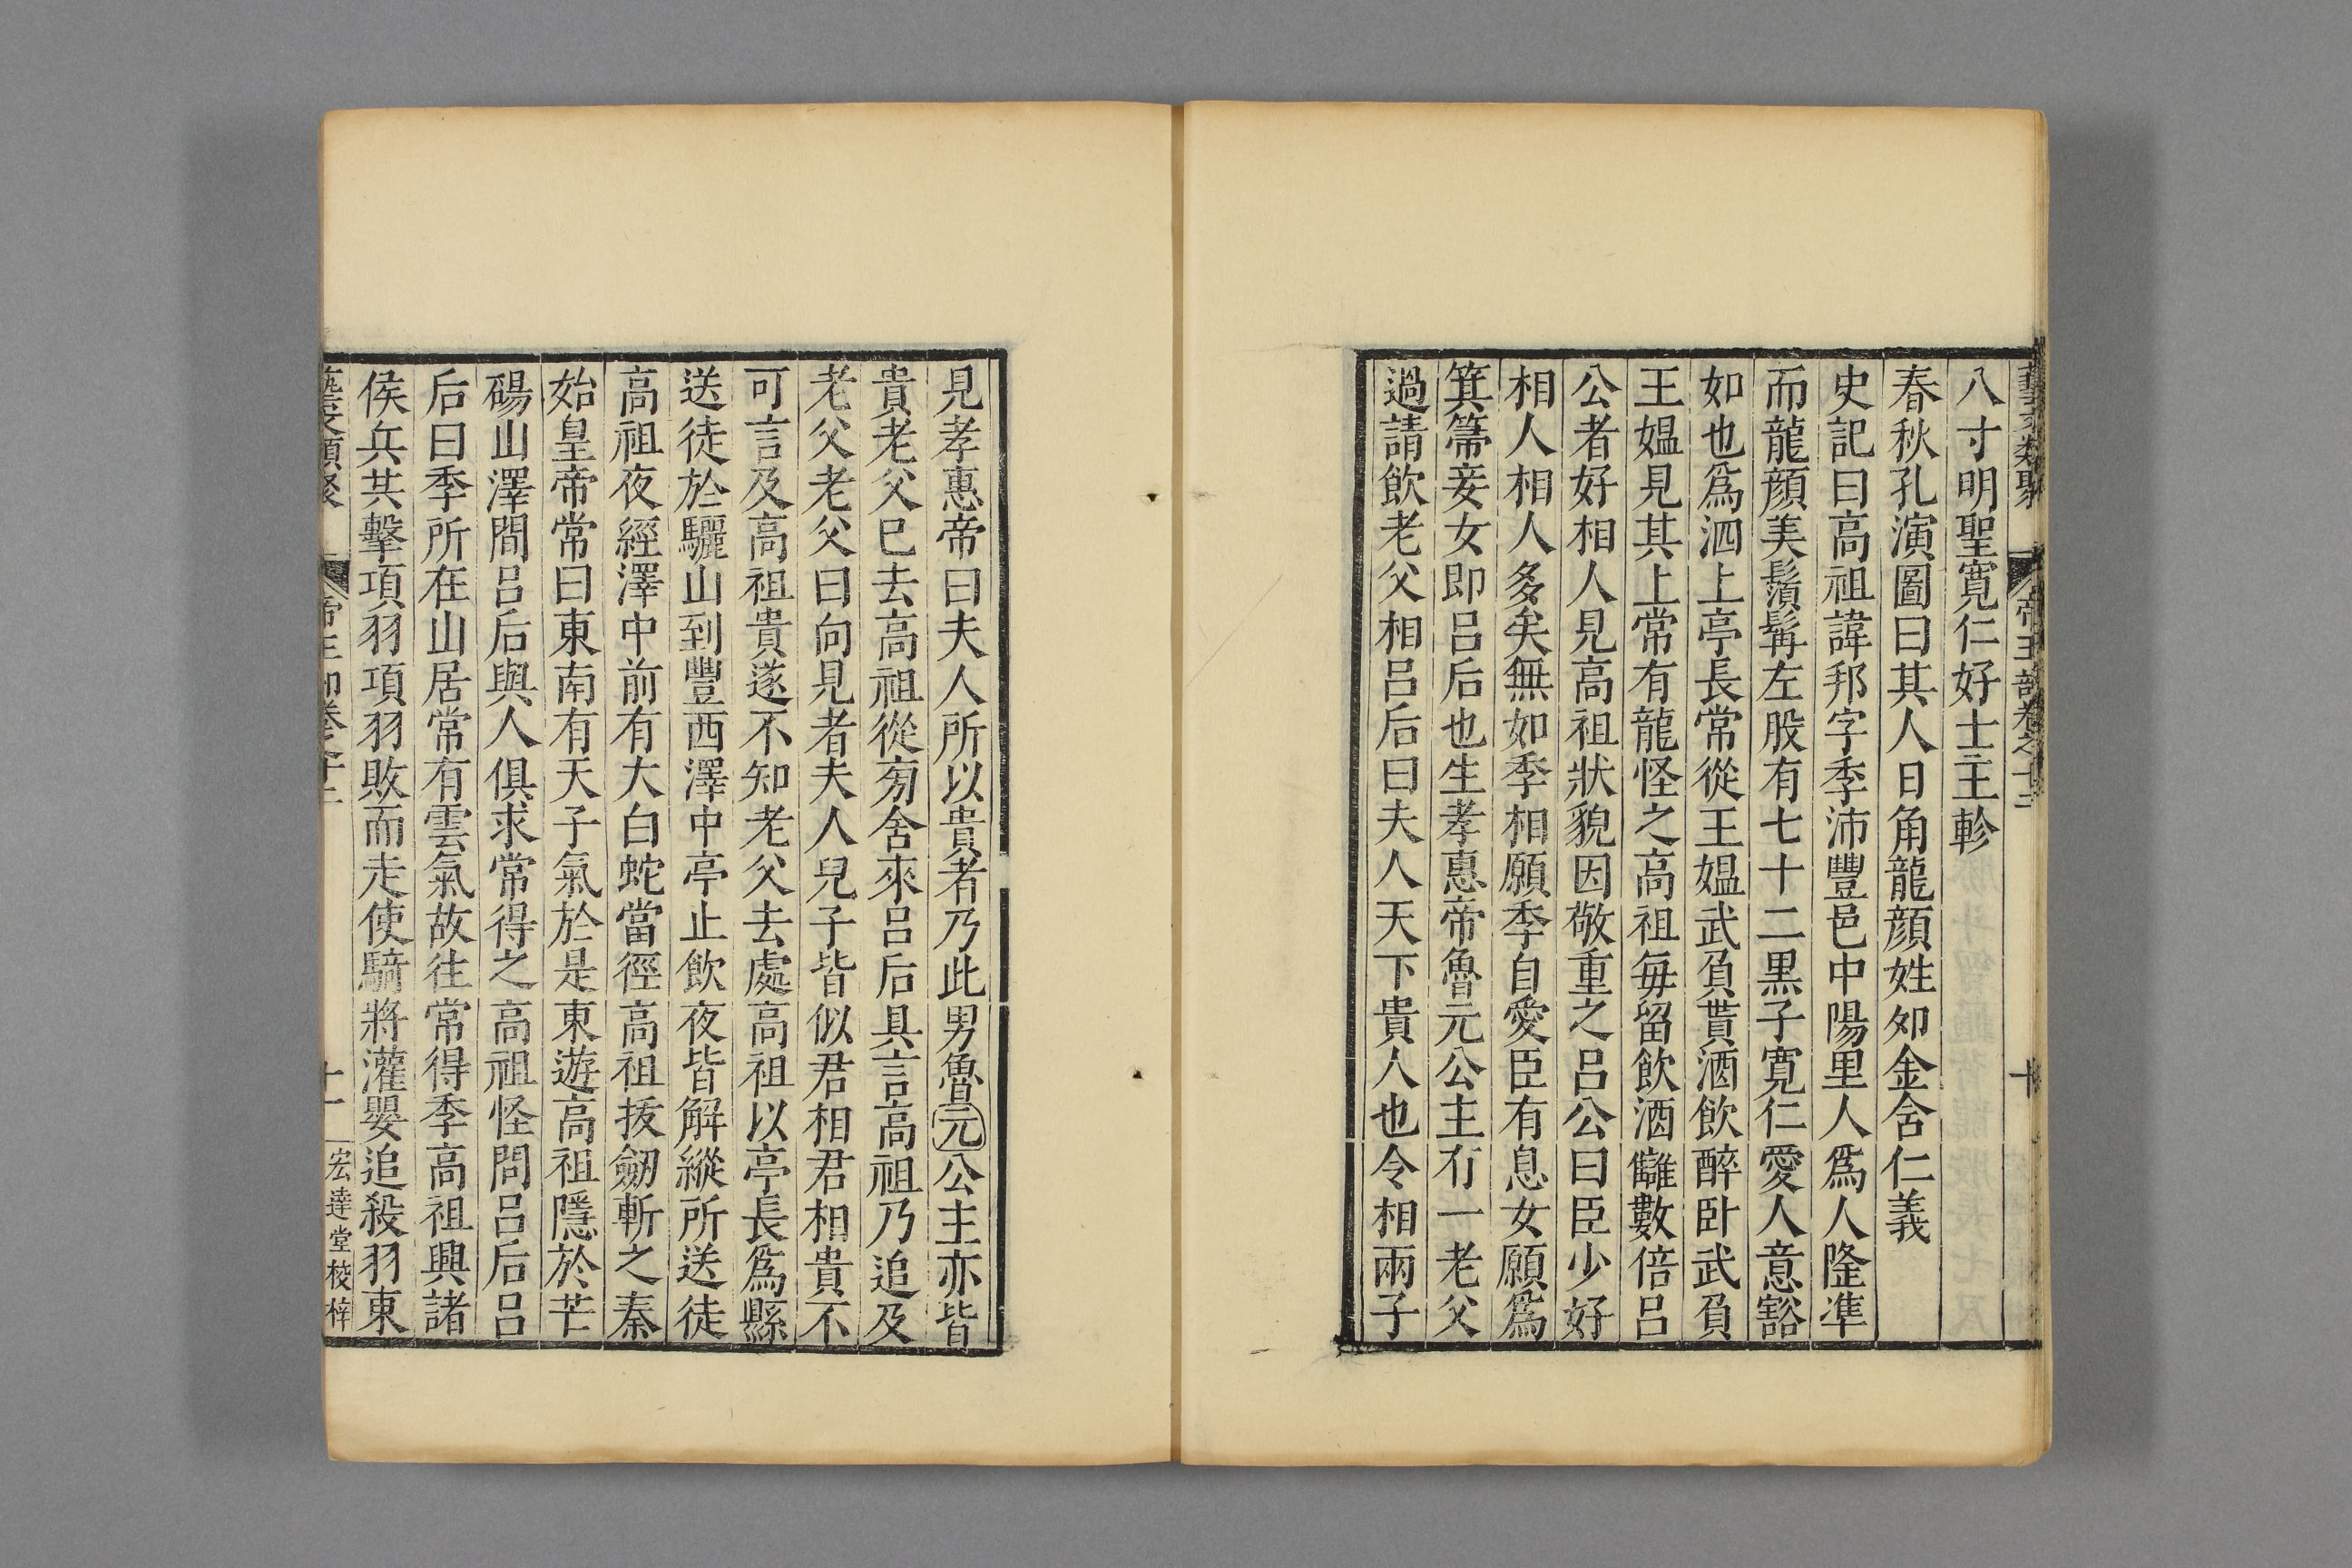 藝文類聚 帝王部卷之十二 十
八寸明聖寬仁好士主軫
春秋孔演圖曰其人日角龍顏姓夘金含仁義
史記曰高祖諱邦字季沛豐邑中陽里人爲人隆準
而龍顏美鬚髯左股有七十二黒子寛仁愛人意豁
如也爲泗上亭長常從王媼武負貰酒飲醉卧武負
王媼見其上常有龍怪之高祖每留飲酒讎數倍呂
公者好相人見高祖狀貌因敬重之呂公曰臣少好
相人相人多矣無如季相願季自愛臣有息女願爲
箕箒妾女即呂后也生孝惠帝魯元公主有一老父
過請飲老父相呂后曰夫人天下貴人也令相兩子
見孝惠帝曰夫人所以貴者乃此男魯元公主亦皆
貴老父已去高祖從旁舍來呂后具言高祖乃追及
老父老父曰向見者夫人兒子皆似君相君相貴不
可言及高祖貴遂不知老父去處高祖以亭長爲縣
送徒於驪山到豐西澤中亭止飲夜皆解縱所送徒
高祖夜經澤中前有大白蛇當徑高祖拔劒斬之秦
始皇帝常曰東南有天子氣於是東遊高祖隱於芒
碭山澤間呂后與人俱求常得之高祖怪問呂后呂
后曰季所在山居常有雲氣故往常得季高祖興諸
侯兵共擊項羽項羽敗而走使騎將灌嬰追殺羽東
藝文類聚 帝王部卷之十二 十一 宏達堂校梓